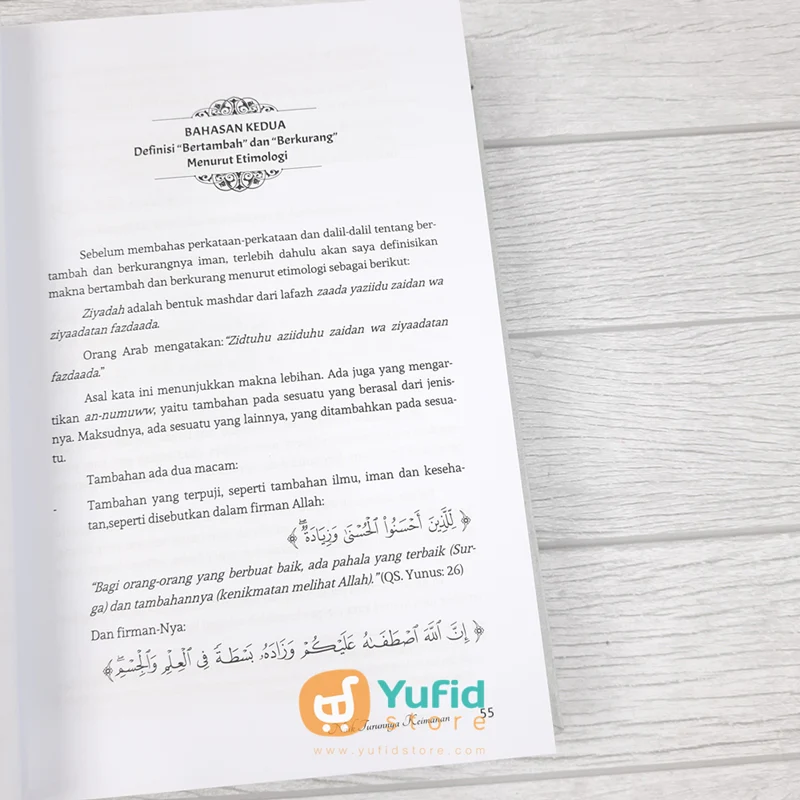 BAHASAN KEDUA
Definisi "Bertambah" dan "Berkurang"
Menurut Etimologi
Sebelum membahas perkataan-perkataan dan dalil-dalil tentang ber-
tambah dan berkurangnya iman, terlebih dahulu akan saya definisikan
makna bertambah dan berkurang menurut etimologi sebagai berikut:
Ziyadah adalah bentuk mashdar dari lafazh zaada yaziidu zaidan wa
ziyaadatan fazdaada.
Orang Arab mengatakan: "Zidtuhu aziiduhu zaidan wa ziyaadatan
fazdaada."
Asal kata ini menunjukkan makna lebihan. Ada juga yang mengar-
tikan an-numuww, yaitu tambahan pada sesuatu yang berasal dari jenis-
nya. Maksudnya, ada sesuatu yang lainnya, yang ditambahkan pada sesua-
tu.
Tambahan ada dua macam:
- Tambahan yang terpuji, seperti tambahan ilmu, iman dan keseha-
tan,seperti disebutkan dalam firman Allah:
﴿ لِّلَّذِينَ أَحْسَنُواْ ٱلْحُسْنَىٰ وَزِيَادَةٌۖ ﴾
"Bagi orang-orang yang berbuat baik, ada pahala yang terbaik (Sur-
ga) dan tambahannya (kenikmatan melihat Allah)." (QS. Yunus: 26)
Dan firman-Nya:
﴿ إِنَّ ٱللَّهَ ٱصْطَفَىٰهُ عَلَيْكُمْ وَزَادَهُۥ بَسْطَةً فِى ٱلْعِلْمِ وَٱلْجِسْمِۖ ﴾
Yufid
store
Naik Turunnya Keimanan 55
www.yufidstore.com